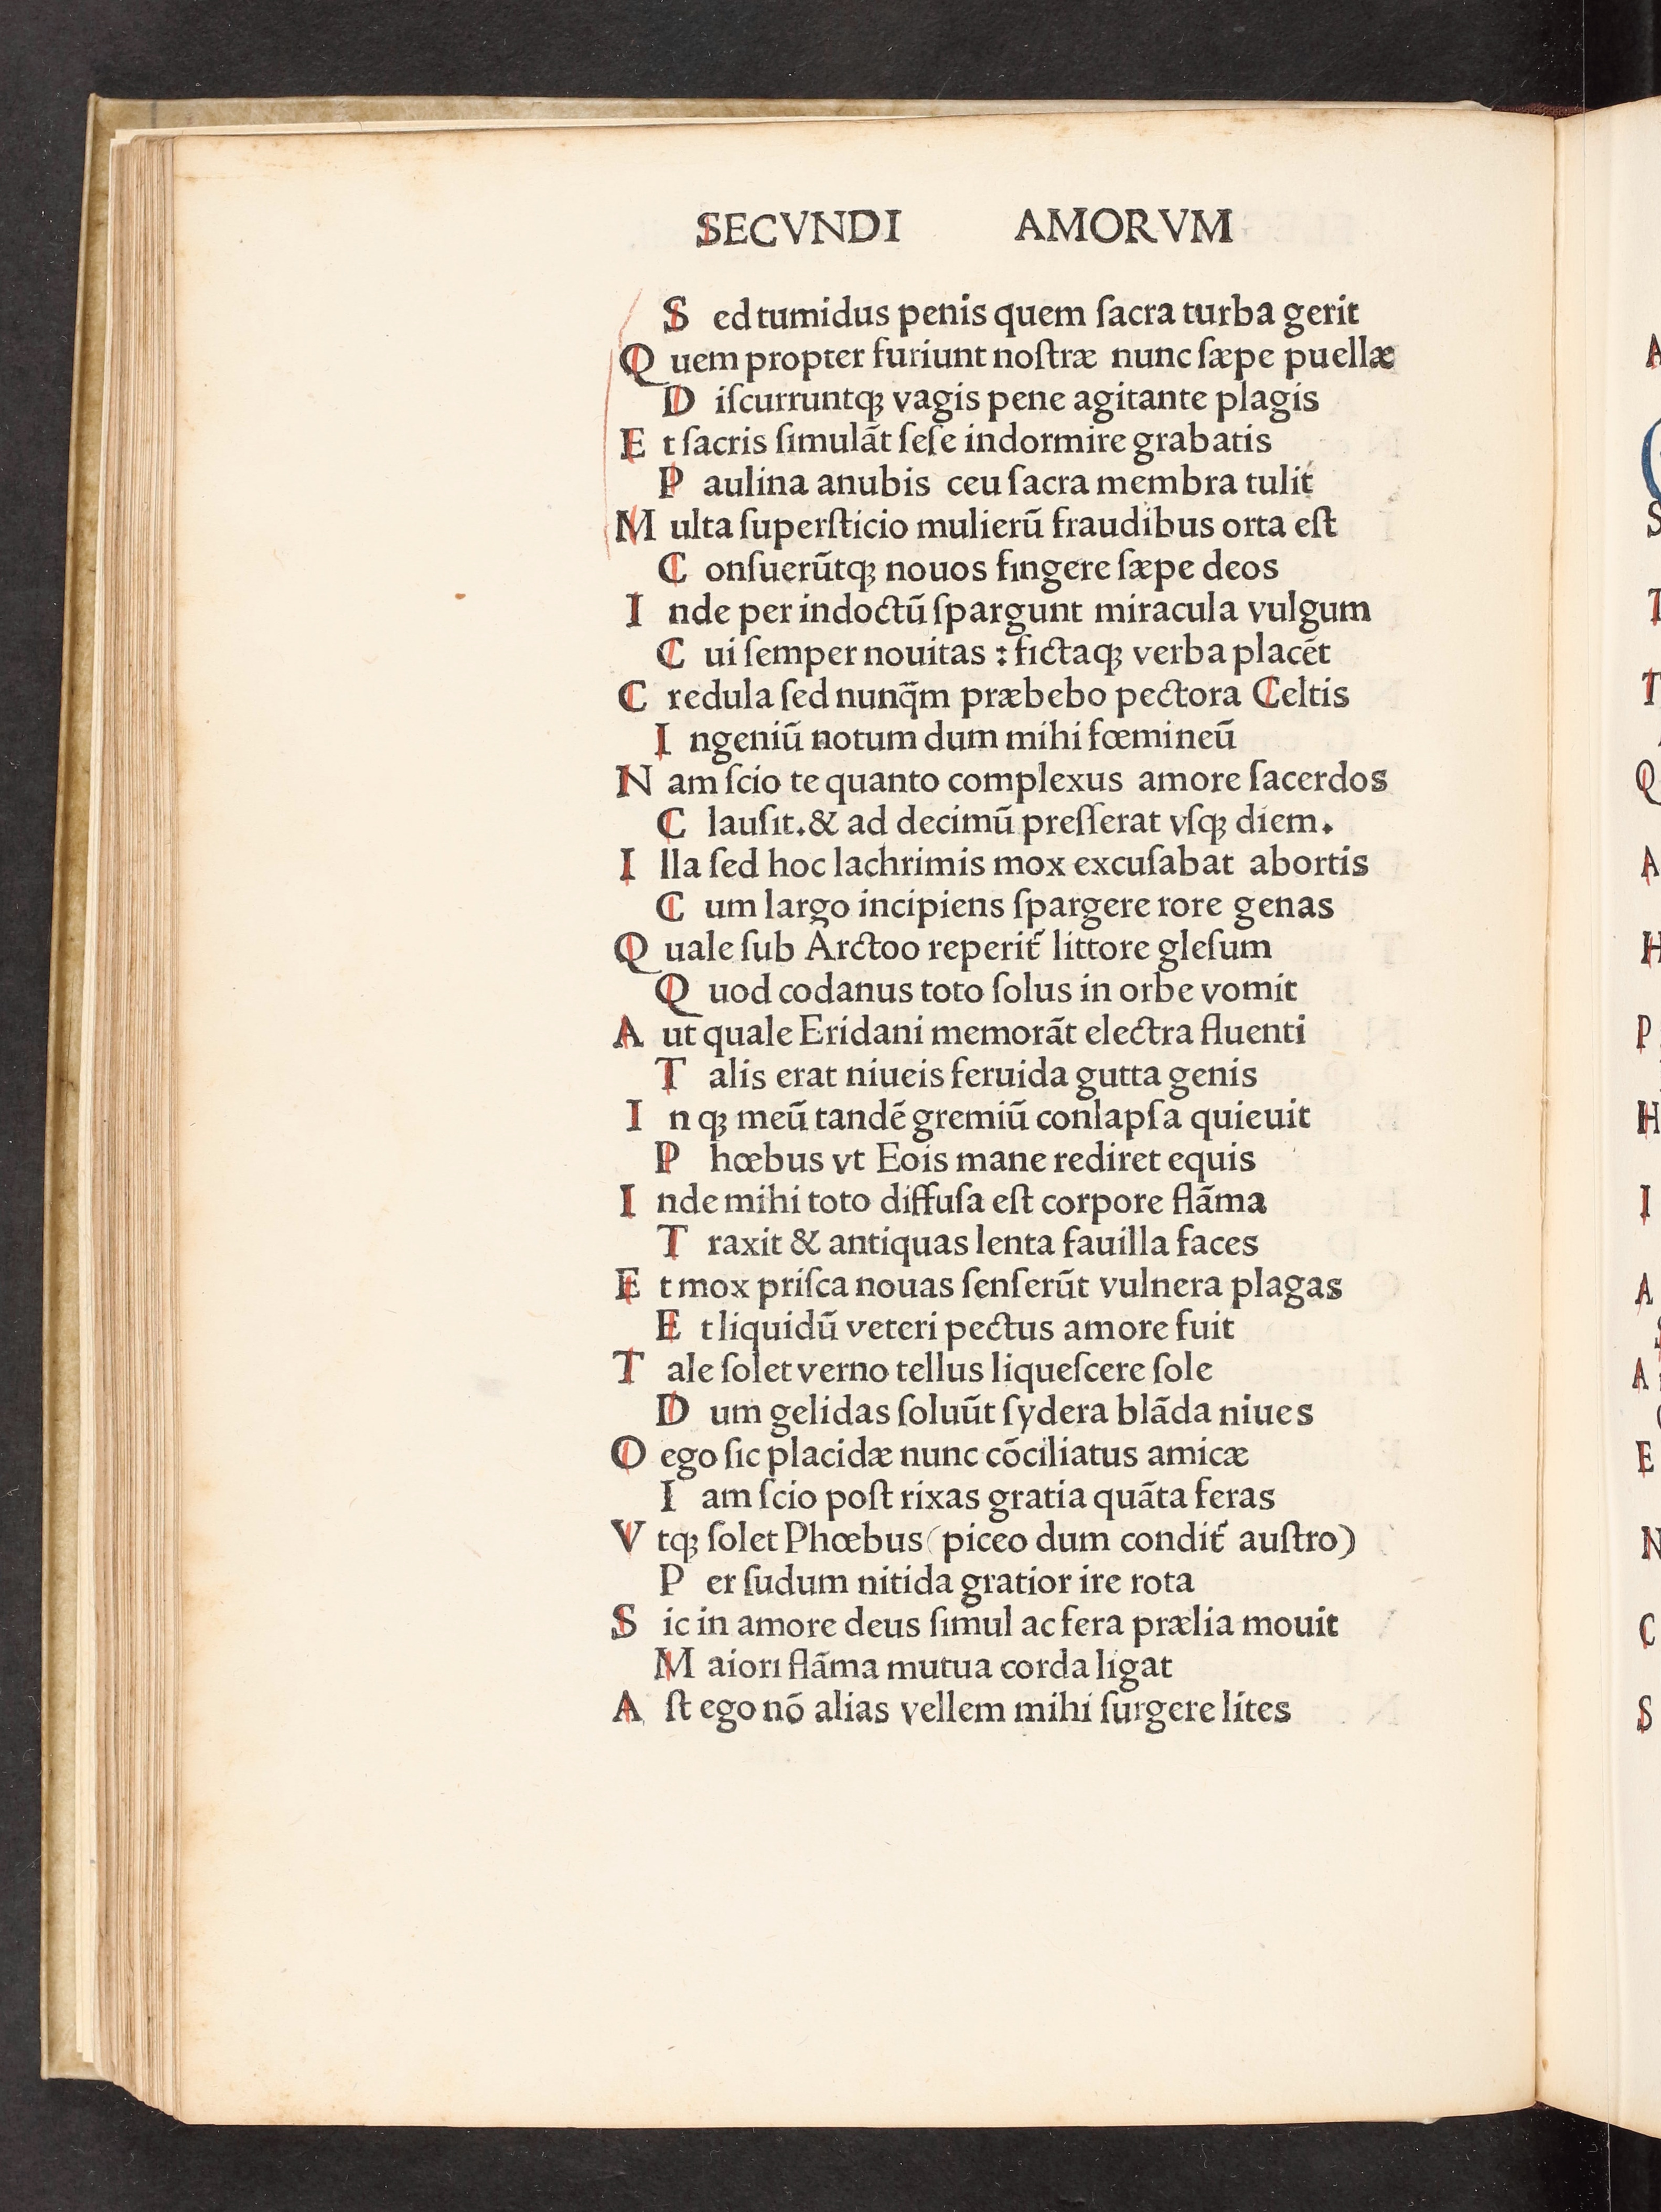 SECVNDI AMORVM
S ed tumidus penis quem ſacra turba gerit
Q uem propter furiunt noſtræ nunc ſæpe puellæ
D iſcurruntqꝫ vagis pene agitante plagis
E t ſacris ſimulāt ſeſe indormire grabatis
P aulina anubis ceu ſacra membra tulit
M ulta ſuperſticio mulierū fraudibus orta eſt
C onſuerūtqꝫ nouos fingere ſæpe deos
I nde per indoctū ſpargunt miracula vulgum
C ui ſemper nouitas : fictaqꝫ verba placēt
C redula ſed nunq̄m præbebo pectora Celtis
I ngeniū notum dum mihi fœmineū
N am ſcio te quanto complexus amore ſacerdos
C lauſit.& ad decimū preſſerat vſqꝫ diem.
I lla ſed hoc lachrimis mox excuſabat abortis
C um largo incipiens ſpargere rore genas
Q uale ſub Arctoo reperit᷑ littore gleſum
Q uod codanus toto ſolus in orbe vomit
A ut quale Eridani memorāt electra fluenti
T alis erat niueis feruida gutta genis
I n qꝫ meū tandē gremiū conlapſa quieuit
P hœbus vt Eois mane rediret equis
I nde mihi toto diffuſa eſt corpore flāma
T raxit & antiquas lenta fauilla faces
E t mox priſca nouas ſenſerūt vulnera plagas
E t liquidū veteri pectus amore fuit
T ale ſolet verno tellus liqueſcere ſole
D um gelidas ſoluūt ſydera blāda niues
O ego ſic placidæ nunc cōciliatus amicæ
I am ſcio poſt rixas gratia quāta feras
V tqꝫ ſolet Phœbus (piceo dum condit᷑ auſtro)
P er ſudum nitida gratior ire rota
S ic in amore deus ſimul ac fera prælia mouit
M aiori flāma mutua corda ligat
A ſt ego nō alias vellem mihi ſurgere lites
A
S
T
T
Q
A
H
P
H
I
A
A
E
N
C
S